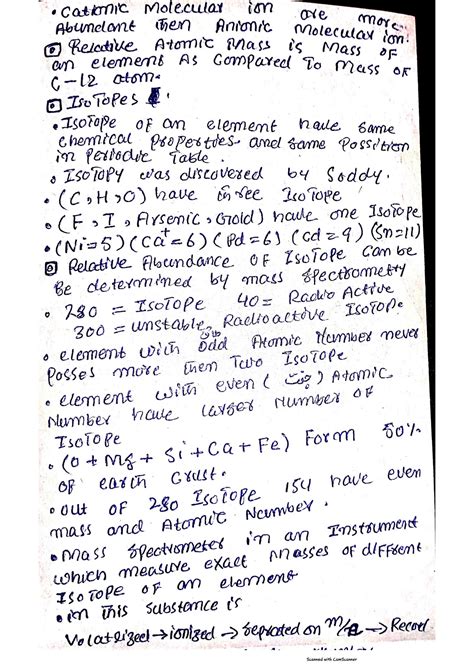 • Cationic Molecular ion are more
Abundant then Anionic Molecular ion.
Relative Atomic Mass is Mass of
an element As Compared To Mass of
C-12 atom.
IsoTopes
• Isotope of an element have same
chemical properties and same Possition
in Periodic Table.
• Isotopy was discovered by Soddy.
• (C, H, O) have three Isotope
• (F, I, Arsenic, Gold) have one Isotope
• (Ni=5) (Ca+=6) (Pd=6) (Cd=9) (Sn=11)
Relative Abundance of Isotope Can be
Be determined by mass spectrometry
• 280 = Isotope 40= Radio Active
300 = unstable Radioactive Isotope
طاق
• element with odd Atomic Number never
Posses more then Two Isotope
• element with even (جفت) Atomic
Number have larger Number of
Isotope
• (O + Mg + Si + Ca + Fe) Form 80%
of earth Crust.
• out of 280 Isotope 154 have even
mass and Atomic Number.
• Mass Spectrometer in an Instrument
which measure exact Masses of different
Isotope of an element
• in this Substance is
Volatized → ionized → Seprated on m/e → Record
Scanned with CamScanner